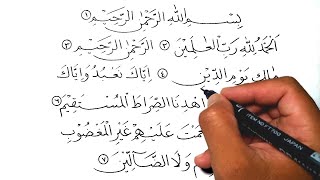 بِسْمِ اللهِ الرَّحْمٰنِ الرَّحِيْمِ ١
اَلْحَمْدُ لِلّٰهِ رَبِّ الْعٰلَمِيْنَ ٢ الرَّحْمٰنِ الرَّحِيْمِ ٣
مٰلِكِ يَوْمِ الدِّيْنِ ٤ اِيَّاكَ نَعْبُدُ وَاِيَّاكَ
اِهْدِنَا الصِّرَاطَ الْمُسْتَقِيْمَ ٦
عَلَيْهِمْ غَيْرِ الْمَغْضُوْبِ
وَلَا الضَّآلِّيْنَ ٧
JAPAN